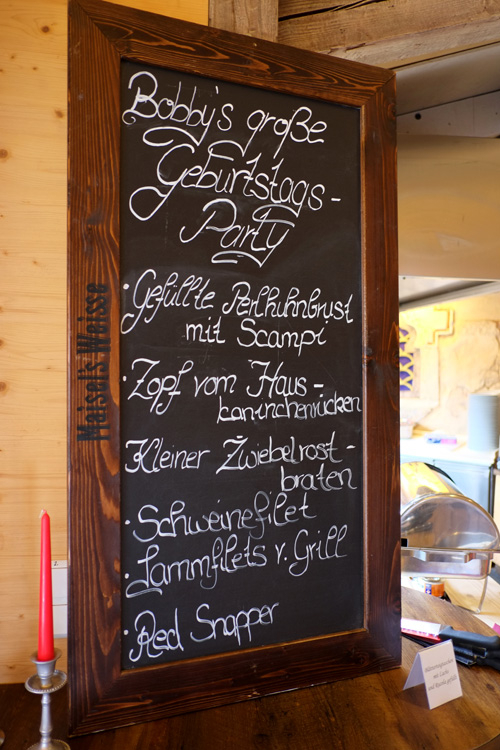 Bobby's große
Geburtstags-
Party
· Gefüllte Perlhuhnbrust
mit Scampi
· Zopf vom Haus-
kaninchenrücken
Kleiner Zwiebelrost-
braten
· Schweinefilet
· Lammfilets v. Grill
· Red Snapper
Maisel's Weisse
mit Lachs